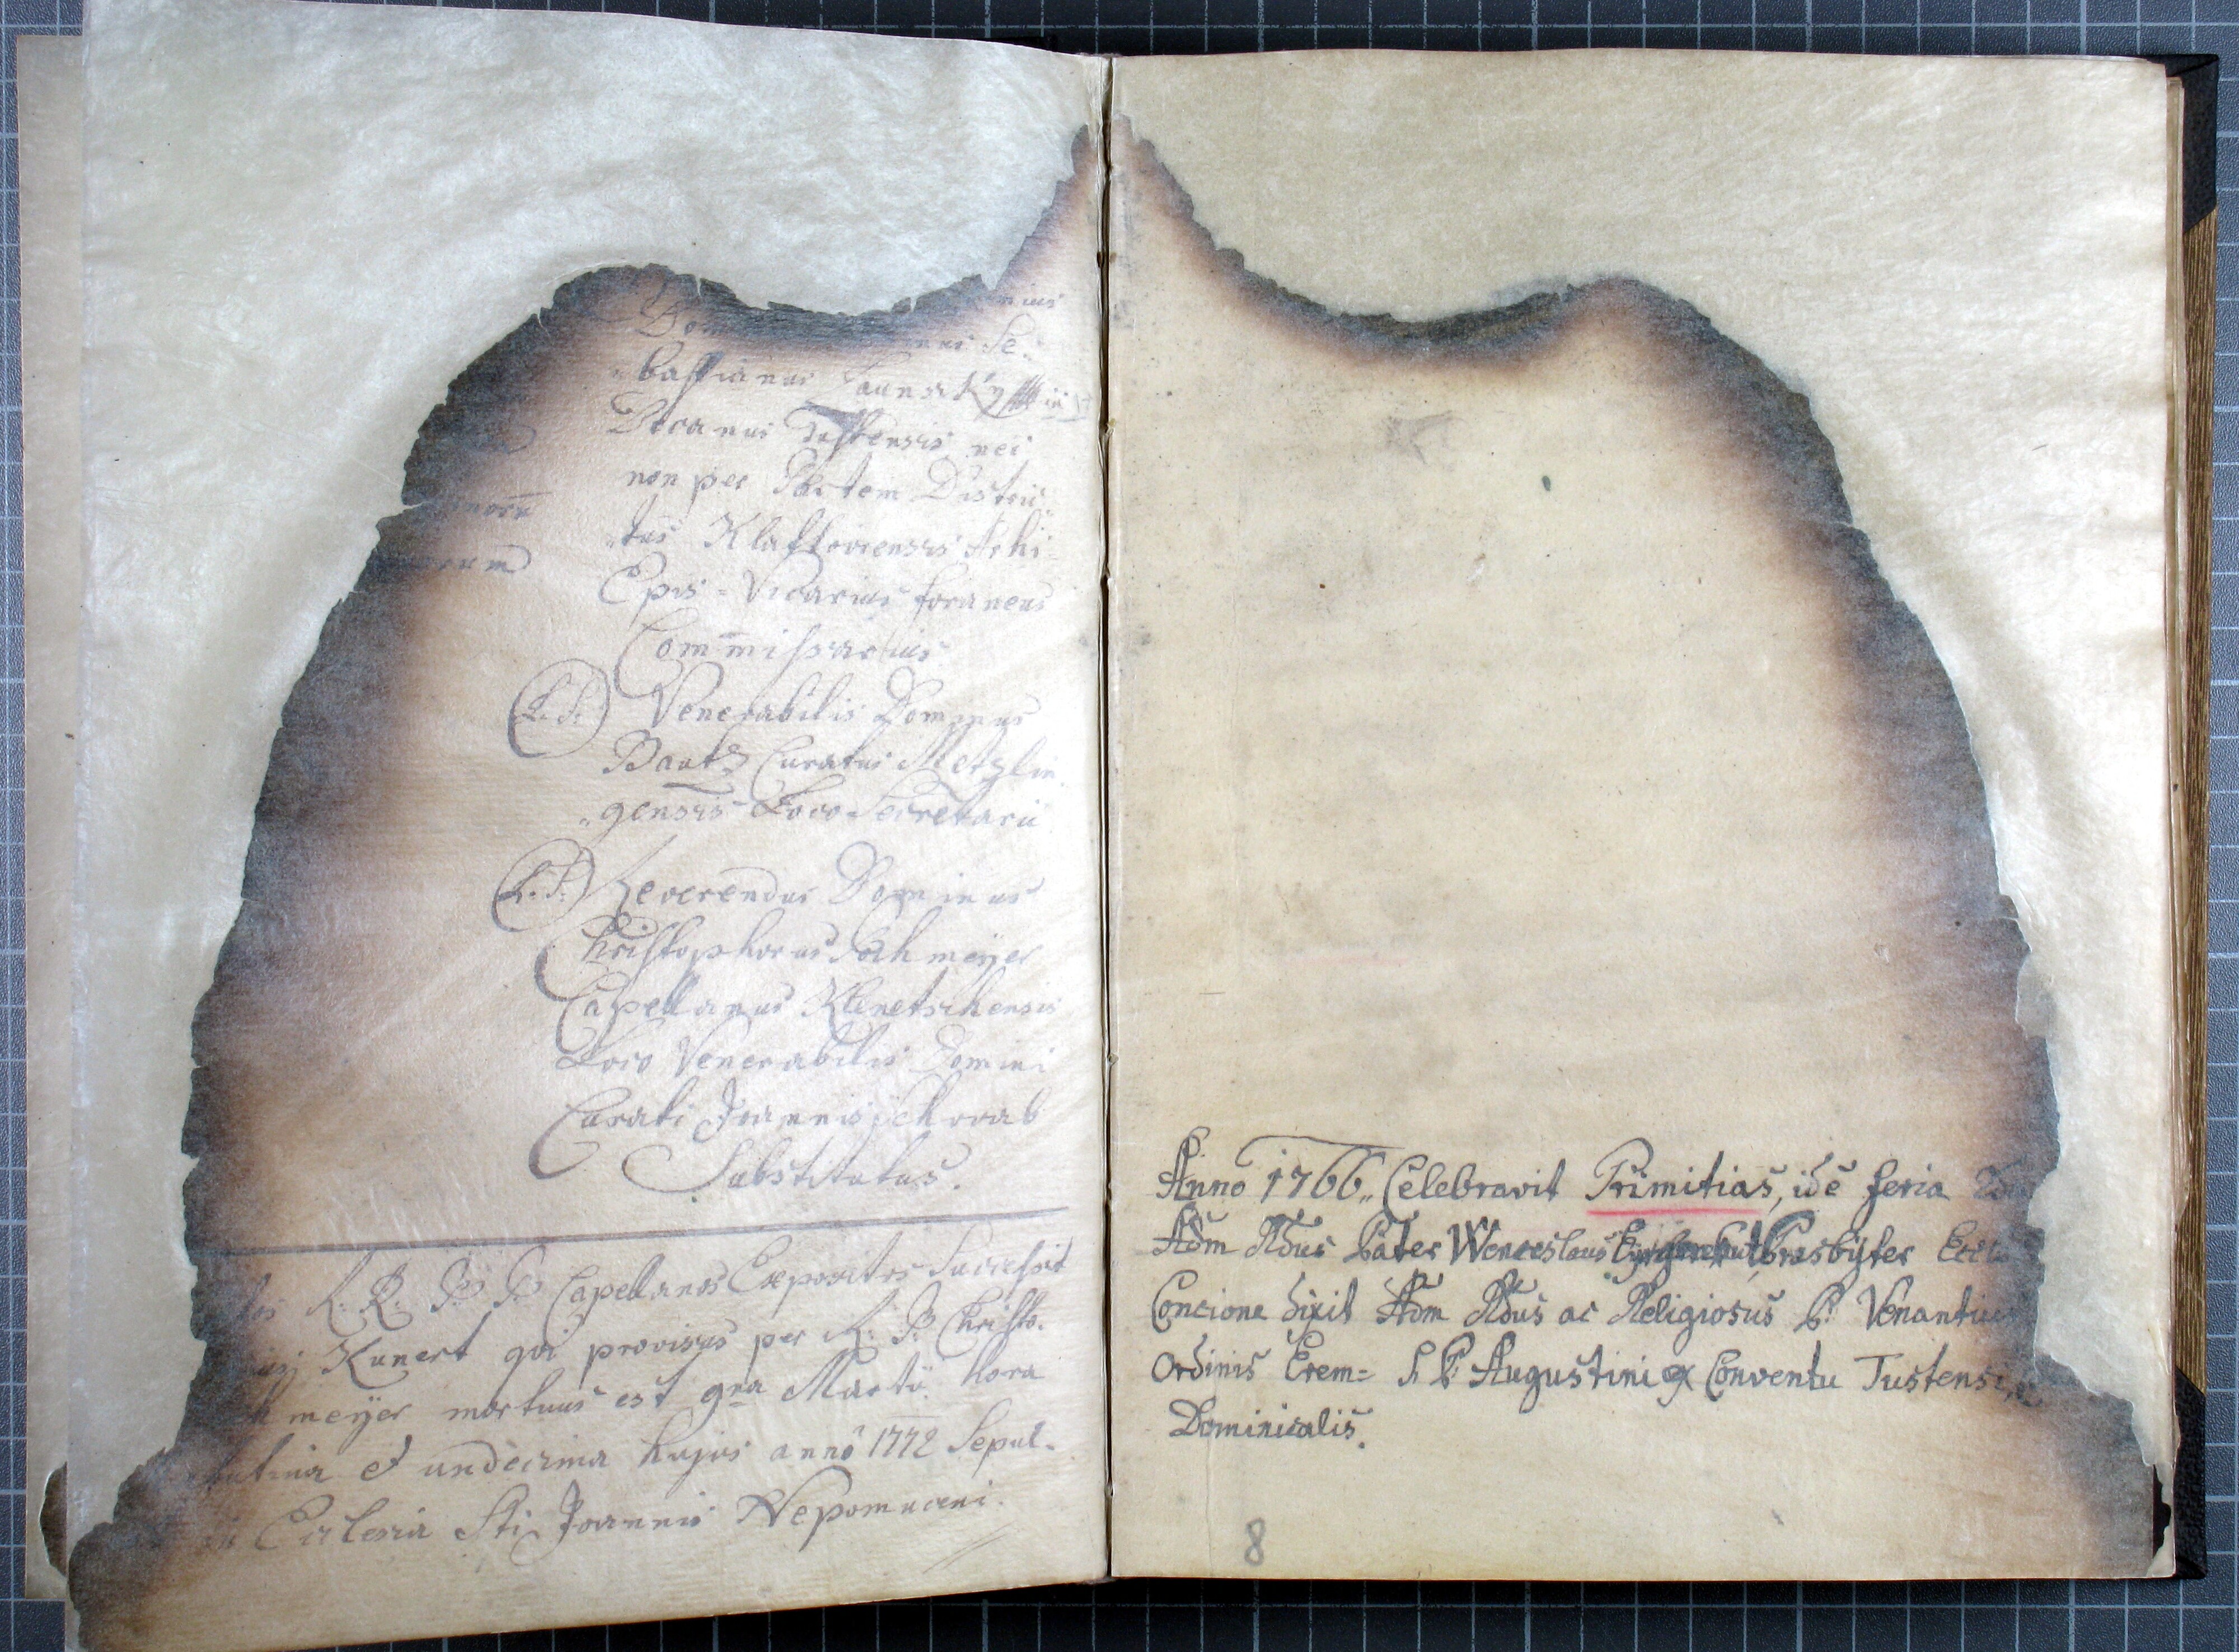 Dom
nus Se:
bastianus
Decanus Tustensis nec
non per Partem Distric
tus Klattoviensis Archi=
Epis = Vicarius foraneus
Com̄missarius
(L.S.) Venerabilis Dominus
Bautz Curatus Metzlin
gensis Loco Secretarii
(L.S.) Reverendus Dominus
Christophorus Pöchmeyer
Capellanus Klenetschensis
Loco Venerabilis Domini
Curati Joannis Schwab
Substitutus.
R. R. P. P. Capellanos Expositos Successit
Kunert qvi provisus per R. P. Christo.
meyer mortuus est 9na Martii hora
et undecima hujus anno 1772 Sepul-
in Ecclesia Sti Joannis Nepomuceni.
Anno 1766 Celebravit Primitias, idē feria
Adm Rdus Pater Wenceslaus Presbyter
Concione dixit Adm Rdus ac Religiosus P. Venantius
Ordinis Erem= S. P. Augustini ex Conventu Tustensi
Dominicalis.
8